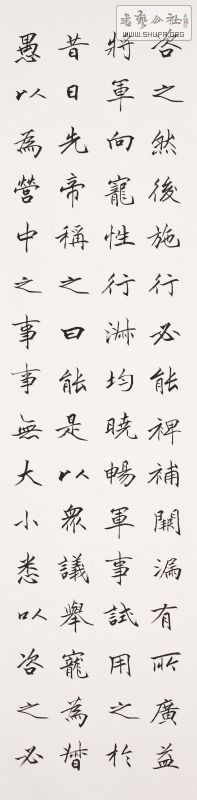 書藝公社
WWW.SHUFA.ORG
咨之然後施行必能裨補闕漏有所廣益
將軍向寵性行淑均曉暢軍事試用之於
昔日先帝稱之曰能是以眾議舉寵為督
愚以為營中之事事無大小悉以咨之必